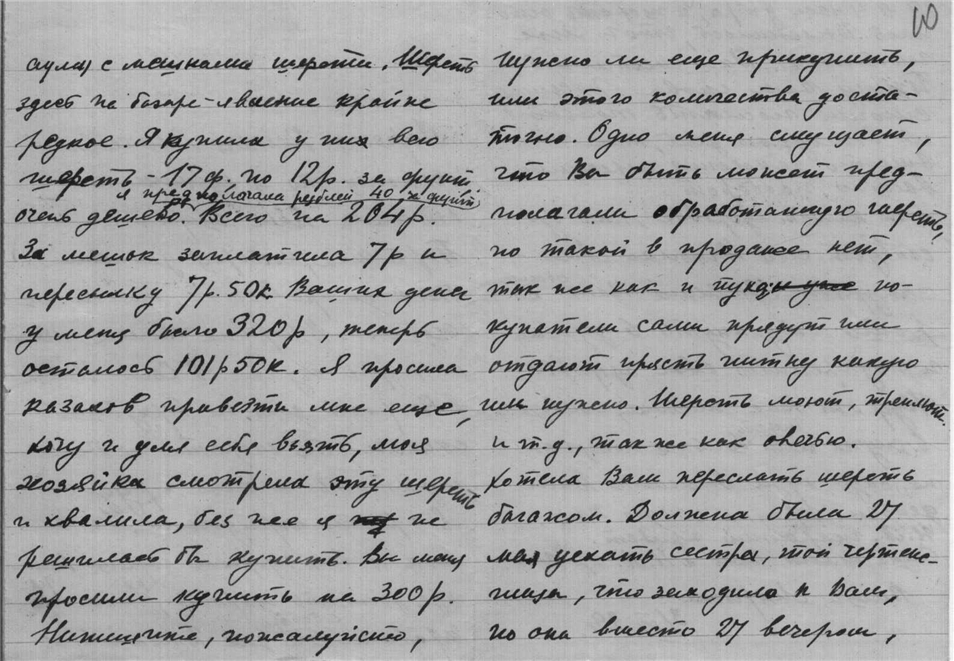 10
аула с мешками шерсти. Шерсть
здесь на базаре - явление крайне
редкое. Я купила у них всю
шерсть - 17 ф. по 12 р. за фунт
я предполагала рублей 40 за фунт
очень дешево. Всего на 204 р.
За мешок заплатила 7 р и
пересылку 7 р. 50 к Ваших денег
у меня было 320 р, теперь
осталось 101 р 50 к. Я просила
казаков привезти мне еще,
хочу и для себя взять, моя
хозяйка смотрела эту шерсть
и хвалила, без нее я не
решилась бы купить. Вы меня
просили купить на 300 р.
Напишите, пожалуйста,
нужно ли еще прикупить,
или этого количества доста-
точно. Одно меня смущает,
что Вы быть может пред-
полагали обработанную шерсть,
но такой в продаже нет,
так же как и по-
купатели сами прядут или
отдают прясть нитку какую
им нужно. Шерсть моют, треплют
и т.д., так же как овечью.
Хотела Вам переслать шерсть
багажом. Должна была 27
мая уехать сестра, той чертеж-
ницы, что заходила к Вам,
но она вместо 27 вечером,